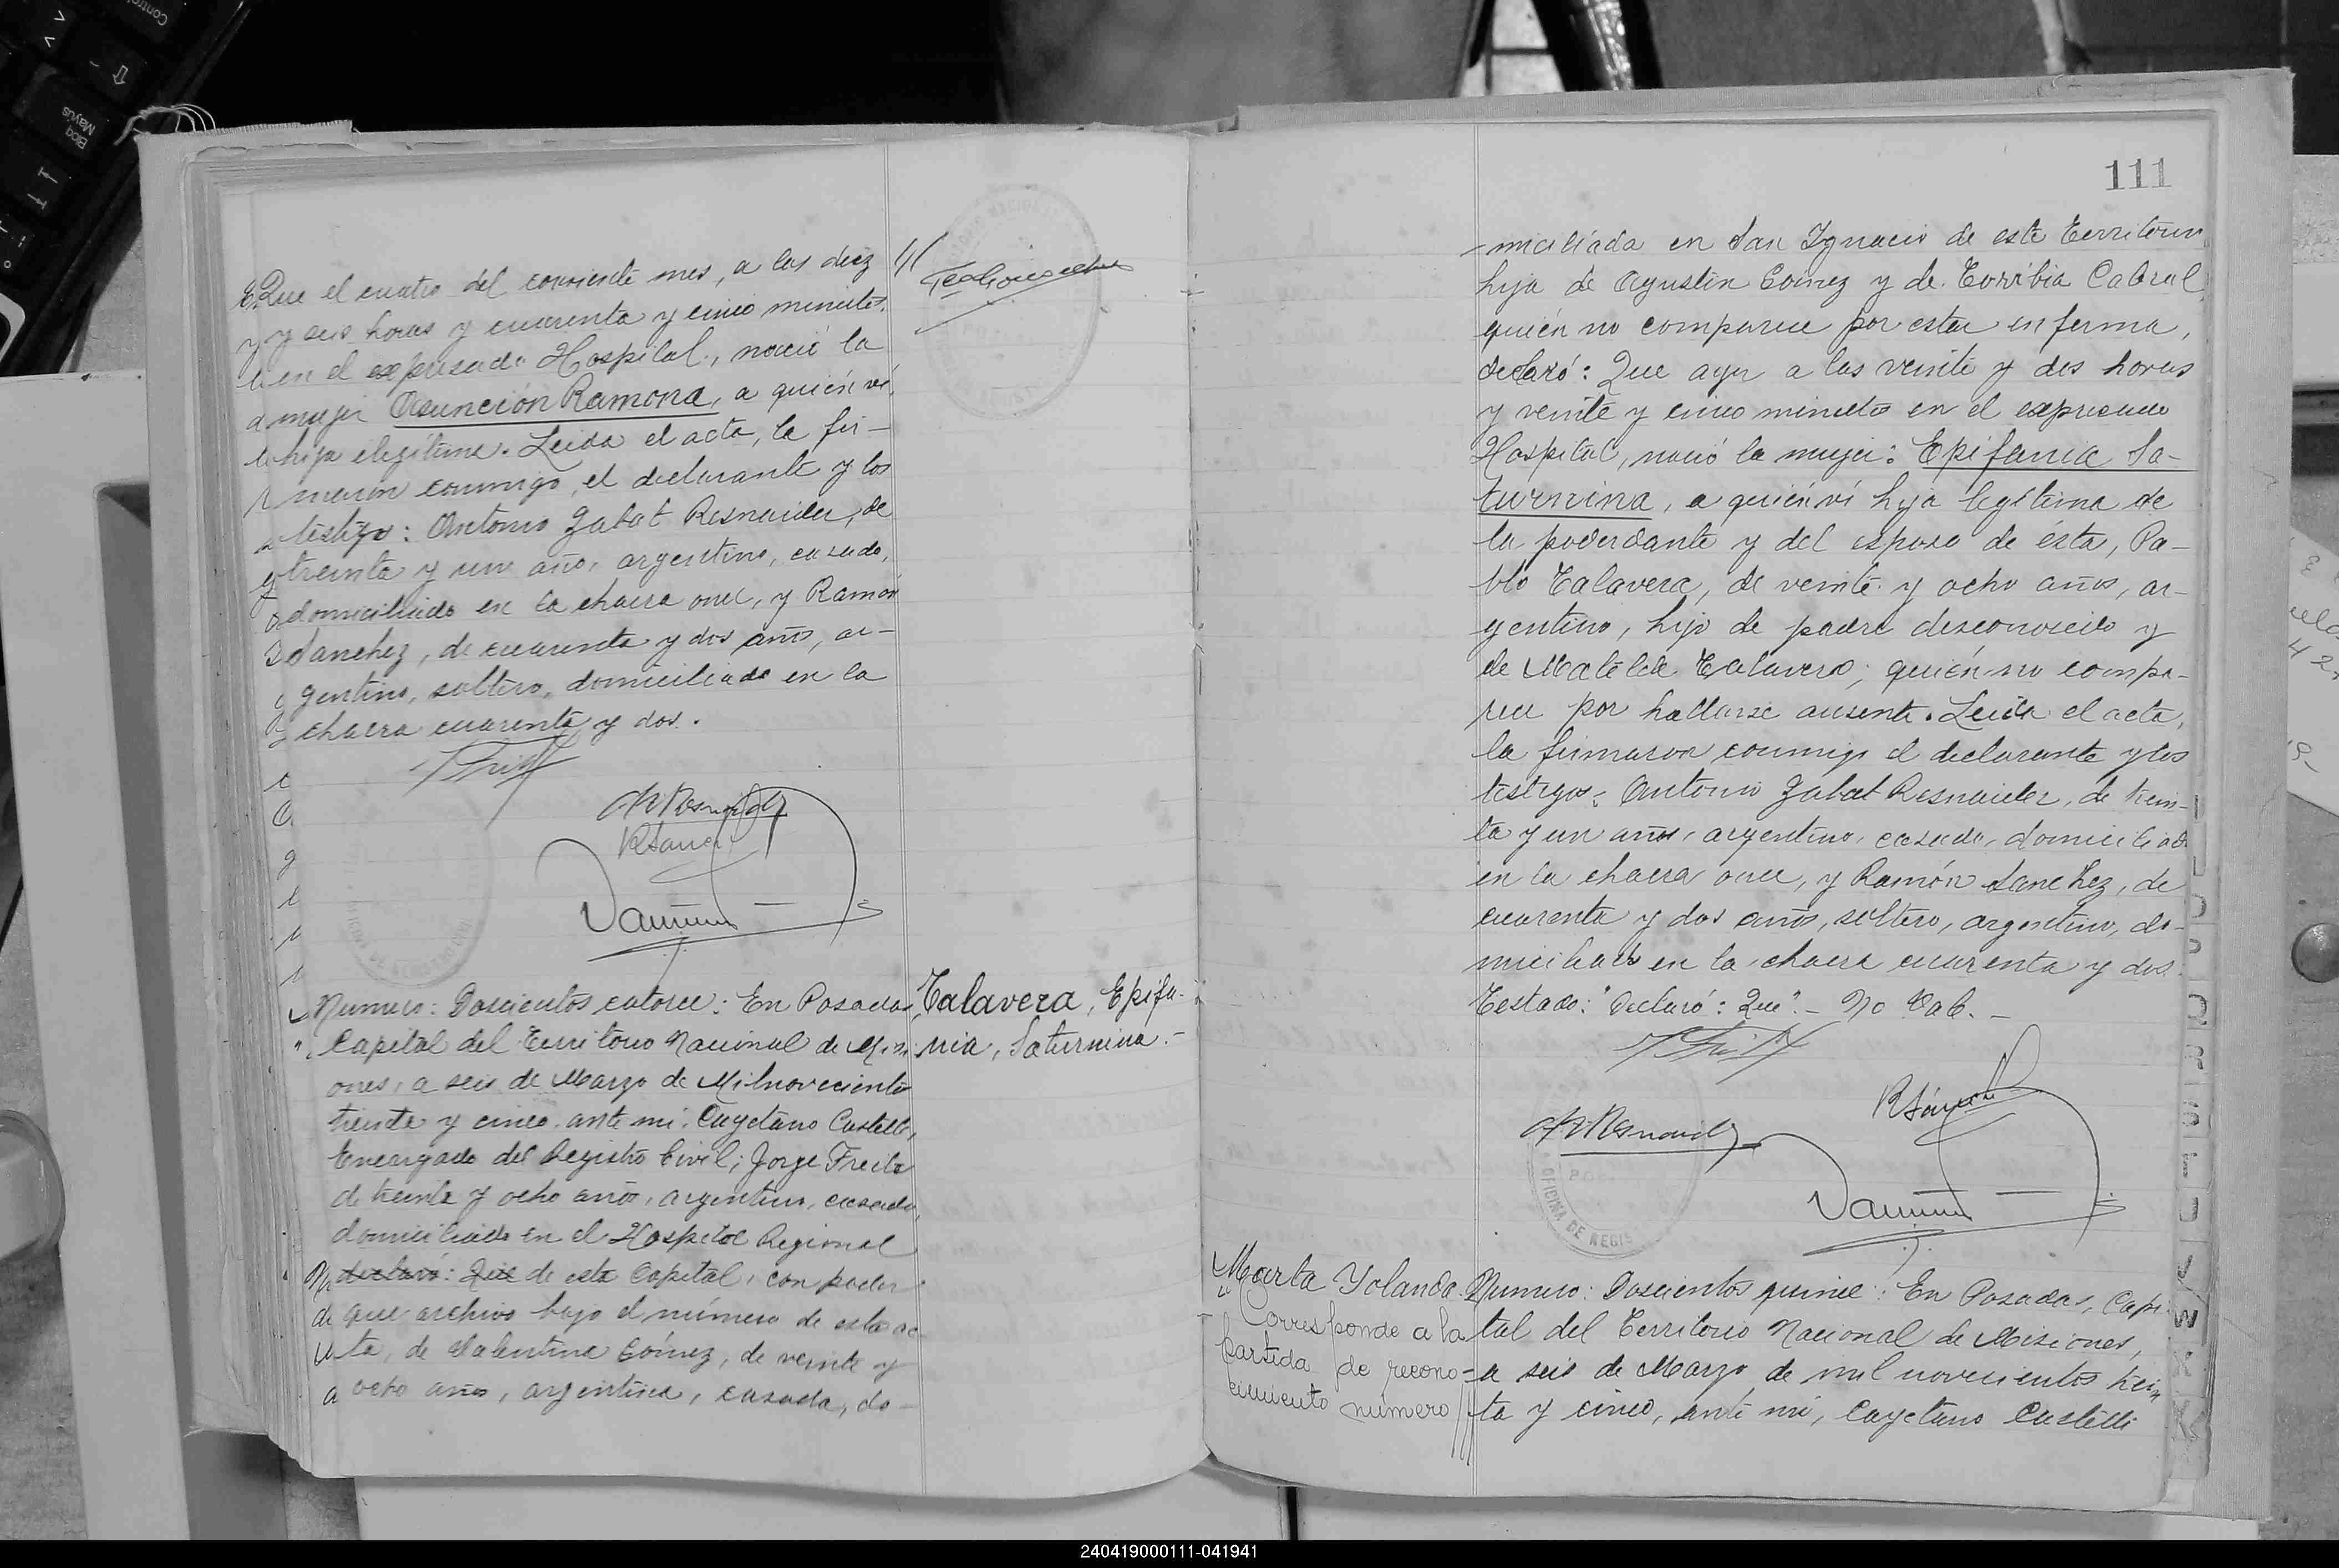 Que el cuatro del corriente mes, a las diez
y seis horas y cuarenta y cinco minutos,
en el expresado Hospital, nació la
mujer Asunción Ramona, a quién ví,
hija ilegítima. Leida el acta, la fir-
maron conmigo, el declarante y los
testigos: Antonio Zabat Resnaider, de
treinta y un años, argentino, casado,
domiciliado en la chacra once, y Ramón
Sanchez, de cuarenta y dos años, ar-
gentino, soltero, domiciliado en la
chacra cuarenta y dos.
Numero: Doscientos catorce: En Posadas,
Capital del Territorio Nacional de Misi
ones, a seis de Marzo de Mil novecientos
treinta y cinco, ante mi, Cayetano Castelli,
Encargado del Registro Civil; Jorge Freits
de treinta y ocho años, argentino, casado,
domiciliado en el Hospital Regional
declaró: Que de esta Capital, con poder
que archivo bajo el número de esta ac-
ta, de Valentina Gómez, de veinte y
ocho años, argentina, casada, do-
Talavera, Epifa-
nia, Saturnina.-
111
-miciliada en San Ignacio de este Territorio
hija de Agustin Gómez y de Toribia Cabral,
quién no comparece por estar enferma,
declaró: Que ayer a las veinte y dos horas
y veinte y cinco minutos en el expresado
Hospital, nació la mujer: Epifania Sa-
turnina, a quién ví hija legítima de
la poderdante y del esposo de ésta, Pa-
blo Talavera, de veinte y ocho años, ar-
gentino, hijo de padre desconocido y
de Matilde Talavera; quién no compa-
rece por hallarse ausente. Leida el acta,
la firmaron conmigo el declarante y los
testigos: Antonio Zabat Resnaider, de trein-
ta y un años, argentino, casado, domiciliado
en la chacra once, y Ramón Sanchez, de
cuarenta y dos años, soltero, argentino, do-
miciliado en la chacra cuarenta y dos.
Testado: "Declaró: Que".- No Vale.-
OFICINA DE REGIS
Marta Yolanda
Corresponde a la
partida de recono-
cimiento número
Numero: Doscientos quince: En Posadas, Capi-
tal del Territorio Nacional de Misiones,
a seis de Marzo de mil novecientos trein
ta y cinco, ante mi, Cayetano Castelli
240419000111-041941